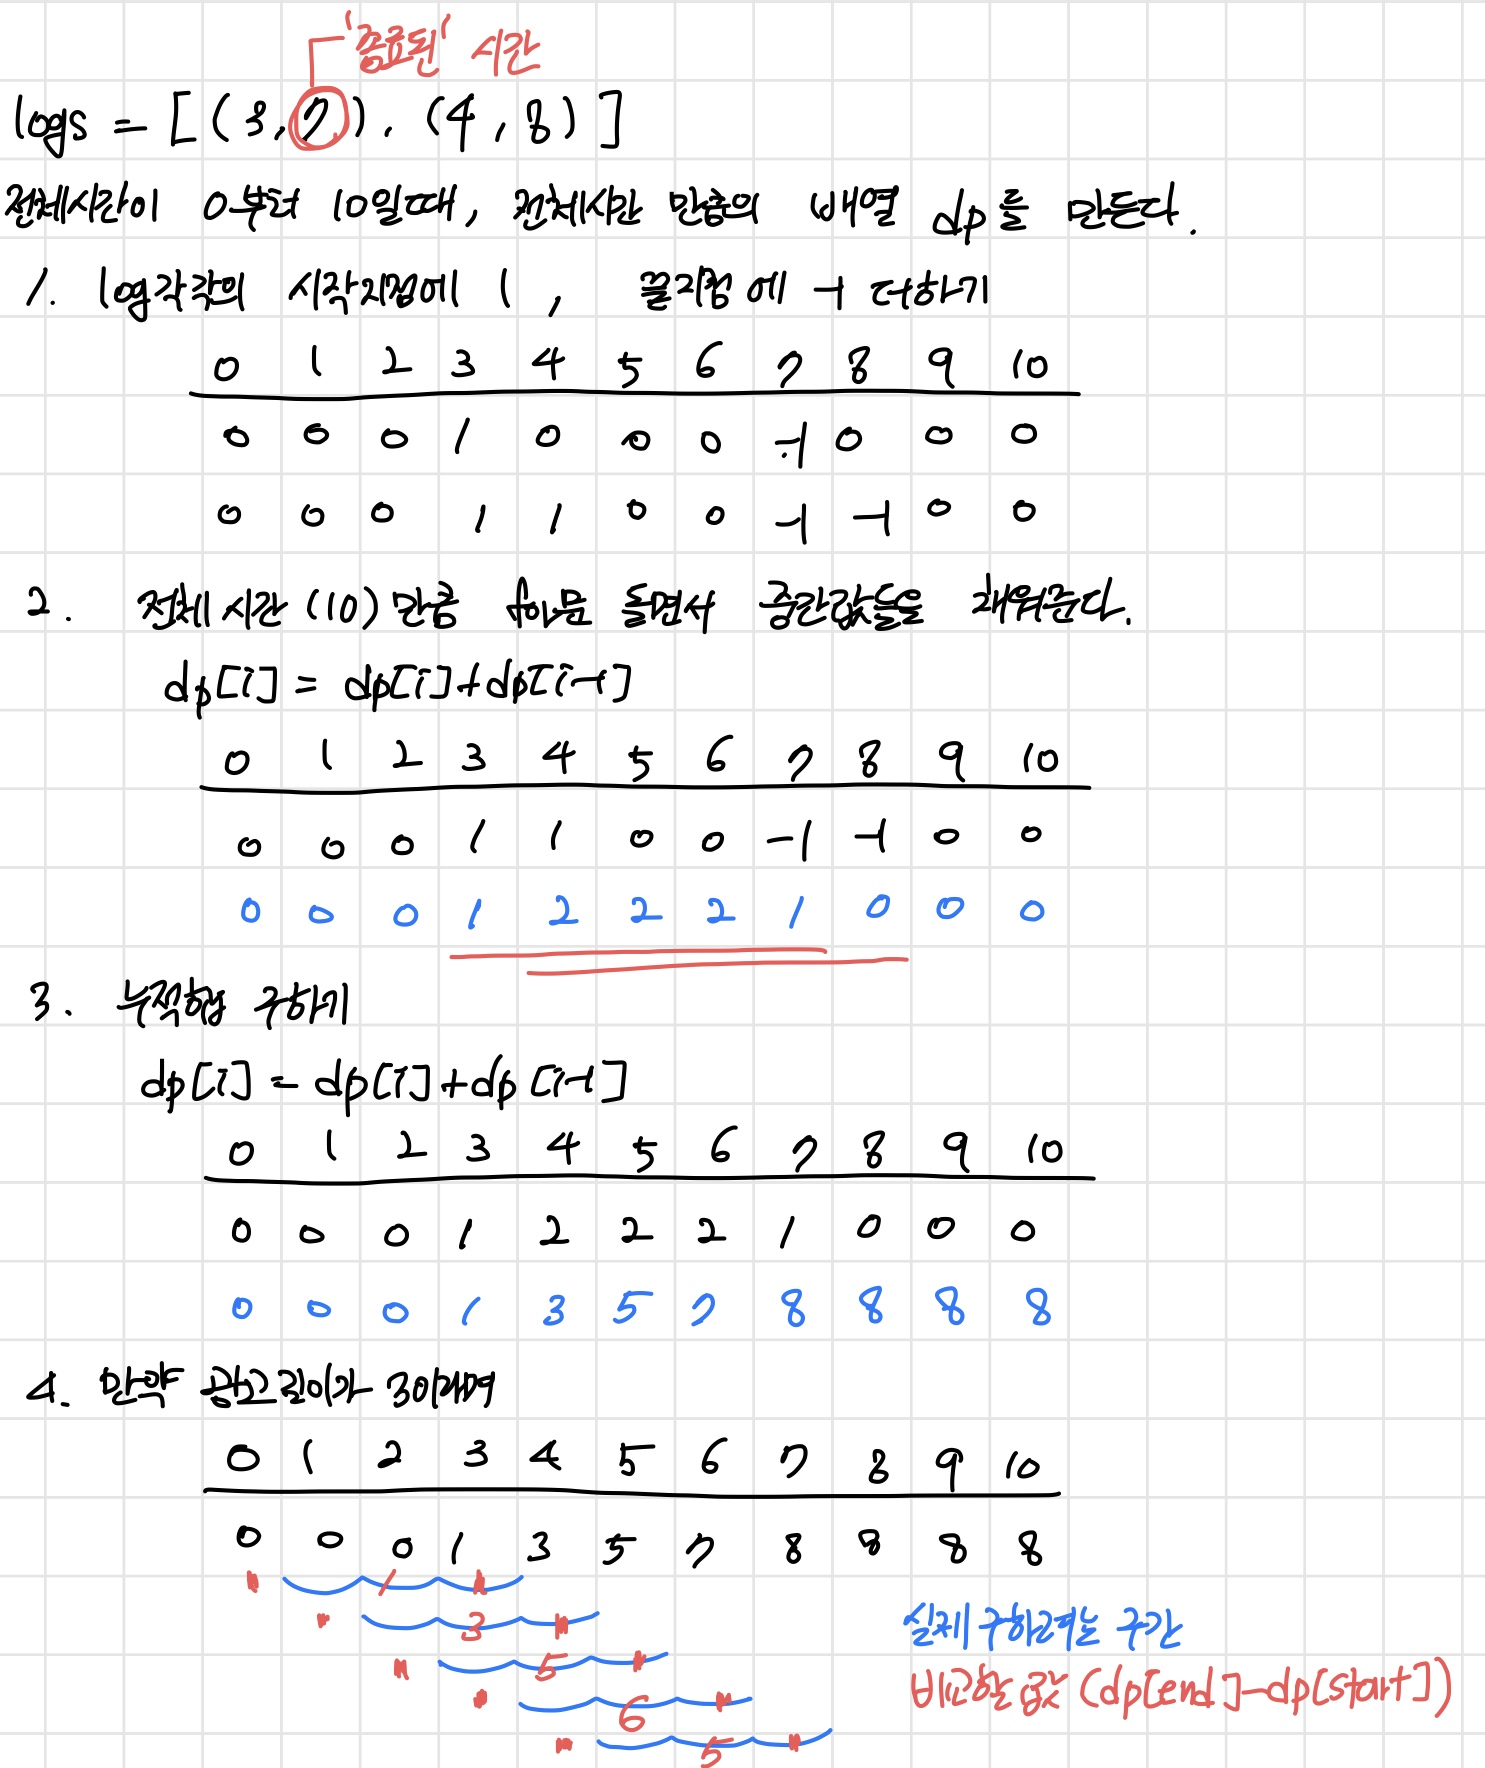 '종료된' 시간
logs = [(3,7), (4,8)]
전체시간이 0부터 10일때, 전체시간 만큼의 배열 dp를 만든다.
1. log각각의 시작지점에 1, 끝지점에 -1 더하기
0 1 2 3 4 5 6 7 8 9 10
0 0 0 1 0 0 0 -1 0 0 0
0 0 0 1 1 0 0 -1 -1 0 0
2. 전체시간(10)만큼 for문 돌면서 중간값들을 채워준다.
dp[i] = dp[i]+dp[i-1]
0 1 2 3 4 5 6 7 8 9 10
0 0 0 1 1 0 0 -1 -1 0 0
0 0 0 1 2 2 2 1 0 0 0
3. 누적합 구하기
dp[i] = dp[i]+dp[i-1]
0 1 2 3 4 5 6 7 8 9 10
0 0 0 1 2 2 2 1 0 0 0
0 0 0 1 3 5 7 8 8 8 8
4. 만약 광고길이가 3이라면
0 1 2 3 4 5 6 7 8 9 10
0 0 0 1 3 5 7 8 8 8 8
1
3
5
6
5
실제 구하려는 구간
비교할 값 (dp[end]-dp[start])